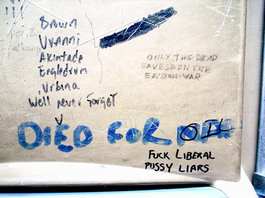 !!!
Brown
Uvanni
Akintade
Engledrum
Urbina
We'll never forget
ONLY THE DEAD
HAVE SEEN THE
END OF WAR
DIED FOR OIL
FUCK LIBERAL
PUSSY LIARS